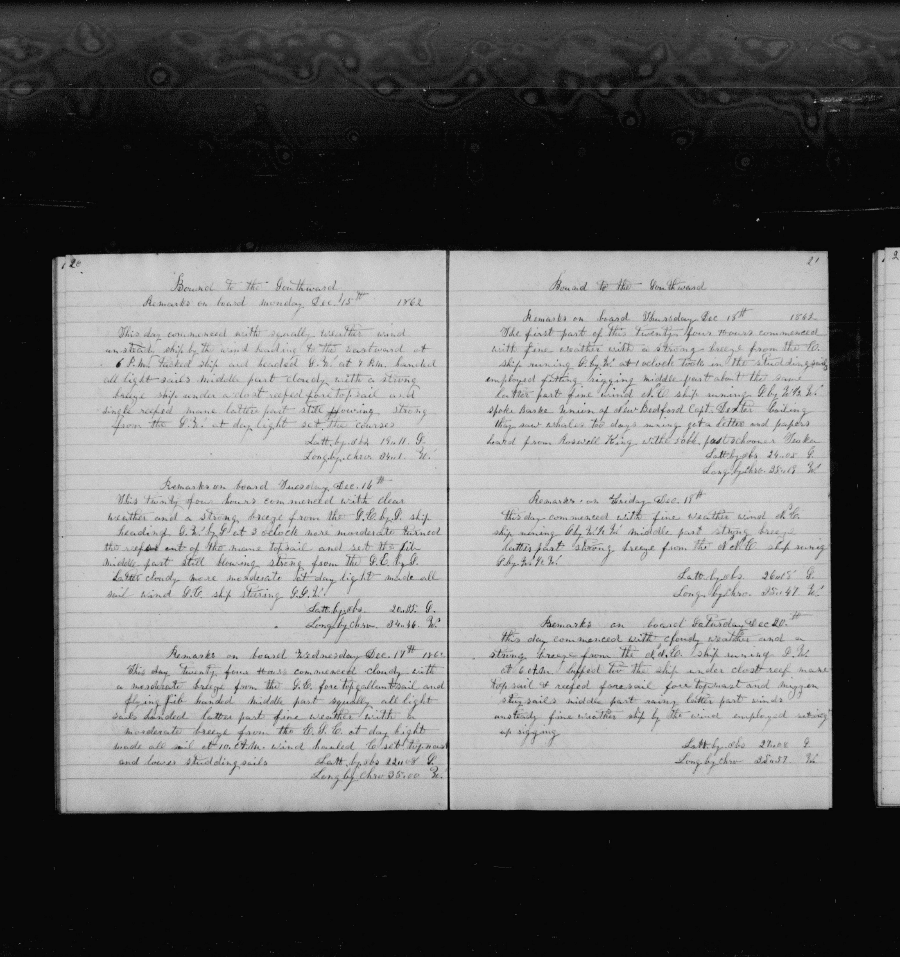 20
Bound to the Southward
Remarks on board monday Dec. 15th 1862
This day commenced with squally weather wind
unsteady ship by the wind heading to the eastward at
6 P.M. tacked ship and headed S.W. at 8 P.M. handed
all light sails middle part cloudy with a strong
breeze ship under a clost reefed fore top sail and
single reefed mane latter part still blowing strong
from the at day light set the courses
Latt. by obs 19 11 S.
Long. by chro 34 1 W.
Remarks on board Tuesday Dec. 16th
This twenty four hours commenced with clear
weather and a strong breeze from the S.E. by S. ship
heading S.W. by S at 3 oclock more morderate turned
the reefs out of the mane topsail and set the jib
middle part still blowing strong from the S.E. by S.
Latter cloudy more moderate at day light made all
sail wind S.E. ship stering S.S.W.
Latt. by obs. 20 35 S.
Long. by chro. 34 46 W.
Remarks on board Wednesday Dec. 17th 1862
This day twenty four hours commenced cloudy with
a morderate breeze from the S.E. fore top gallant sail and
flying jib handed middle part squally all light
sails handed latter part fine weather with a
morderate breeze from the E.S.E. at day light
made all sail at 10 A.M. wind hauled E set top mast
and lower studding sails Latt. by obs 22 08 S.
Long by chro 35 00 W.
21
Bound to the Southward
Remarks on board Thursday Dec 18th 1862
The first part of this twenty four hours commenced
with fine weather with a strong breeze from the E.
ship running S. by W. at 1 oclock took in the studding sails
employed fitting rigging middle part about the same
latter part fine wind ship running S. by W.
spoke barke of New Bedford Capt. Dexter
they saw whales too days running got a letter and papers
heard from Roswell King with 1000 past schooner
Latt. by obs 24 05 S
Long by chro. 35 19 W.
Remarks on Friday Dec. 19th
this day commenced with fine weather wind
ship running S. by W. middle part strong breeze
latter part strong breeze from the ship runing
S. by W.
Latt. by obs. 26 05 S.
Long. by chro. 35 47 W.
Remarks on board Saturday Dec 20th
this day commenced with cloudy weather and a
strong breeze from the ship runing S.W.
at 6 luffed too the ship under clost reef mane
top sail & reefed foresail fore topmast and mizzen
stay sails middle part raing latter part winds
unsteady fine weather ship by the wind employed
up rigging
Latt. by obs 27 08 S
Long. by chro 35 37 W.